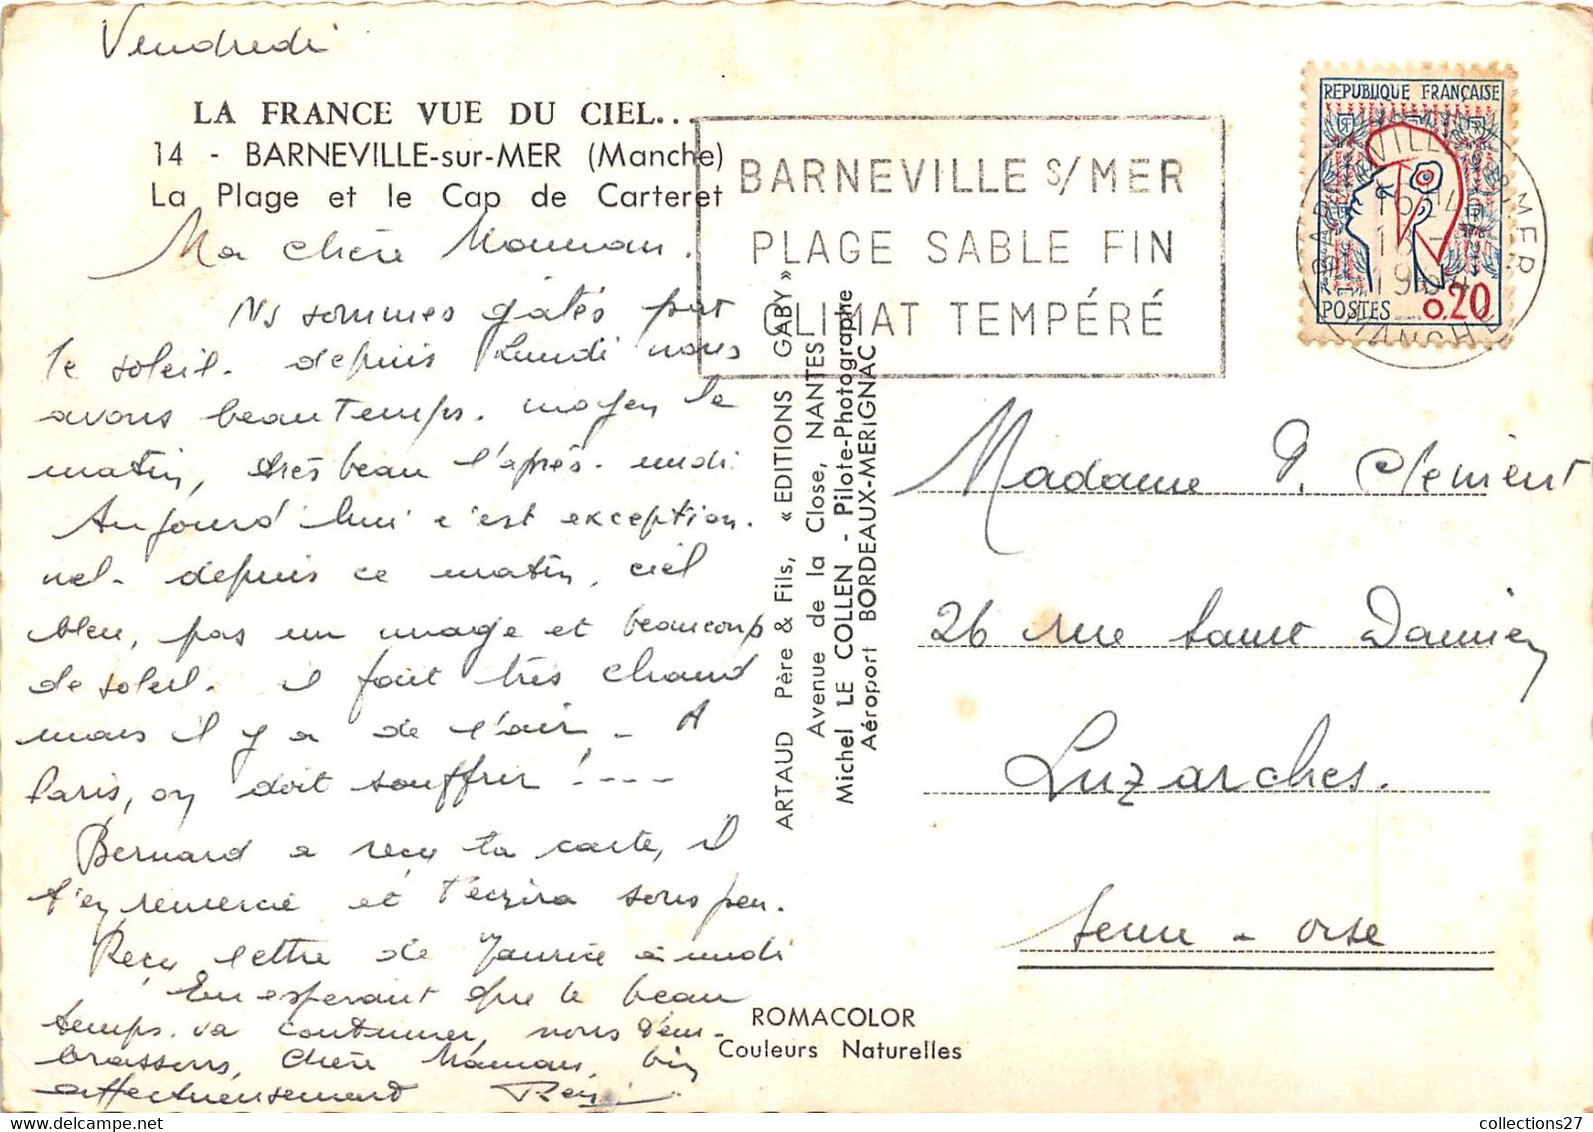 Vendredi
LA FRANCE VUE DU CIEL...
14 - BARNEVILLE-sur-MER (Manche)
La Plage et le Cap de Carteret
Ma chère Maman.
Ns sommes gâtés par
le soleil. depuis Lundi nous
avons beau temps. moyen le
matin, très beau l'après-midi
Aujourd'hui c'est exception-
nel. depuis ce matin, ciel
bleu, pas un nuage et beaucoup
de soleil. il fait très chaud
mais il y a de l'air - A
Paris, on doit souffrir !----
Bernard a reçu ta carte, il
t'en remercie et t'écrira sous peu.
Reçu lettre de Maurice à midi
En espérant que le beau
temps va continuer, nous t'em-
brassons, chère Maman, bien
affectueusement
BARNEVILLE S/MER
PLAGE SABLE FIN
CLIMAT TEMPÉRÉ
REPUBLIQUE FRANÇAISE
POSTES 0,20
BARNEVILLE S. MER
MANCHE
ARTAUD Père & Fils, « EDITIONS GABY »
Avenue de la Close, NANTES
Michel LE COLLEN - Pilote-Photographe
Aéroport BORDEAUX-MERIGNAC
Madame P. Clément
26 rue Saint Damien
Luzarches.
Seine-et-Oise
ROMACOLOR
Couleurs Naturelles
collections27